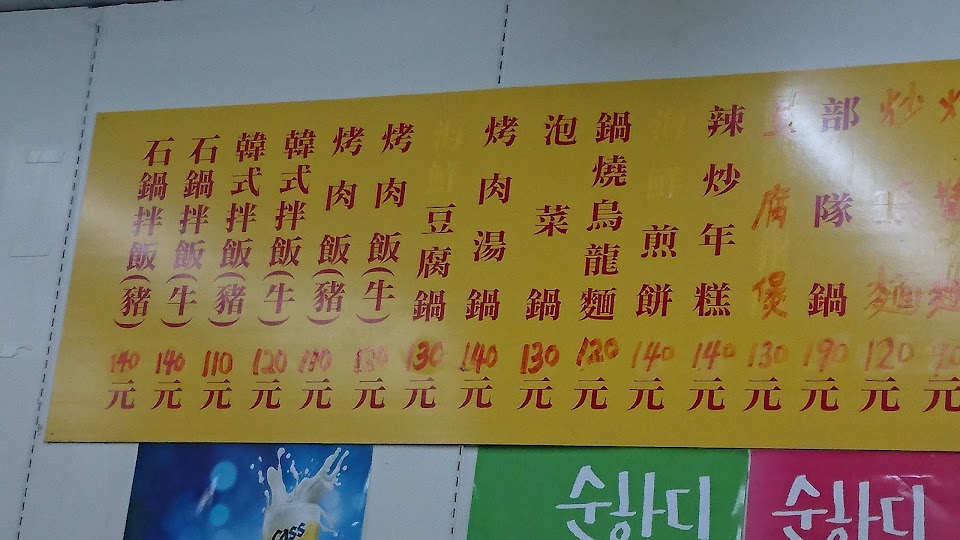 石鍋拌飯(豬)
140元
石鍋拌飯(牛)
140元
韓式拌飯(豬)
110元
韓式拌飯(牛)
120元
烤肉飯(豬)
110元
烤肉飯(牛)
元
豆腐鍋
130元
烤肉湯鍋
140元
泡菜鍋
130元
鍋燒烏龍麵
120元
煎餅
140元
辣炒年糕
140元
豆腐煲
130元
部隊鍋
190元
炒 麵
120元
醬麵
元
CASS
순하다
순하다